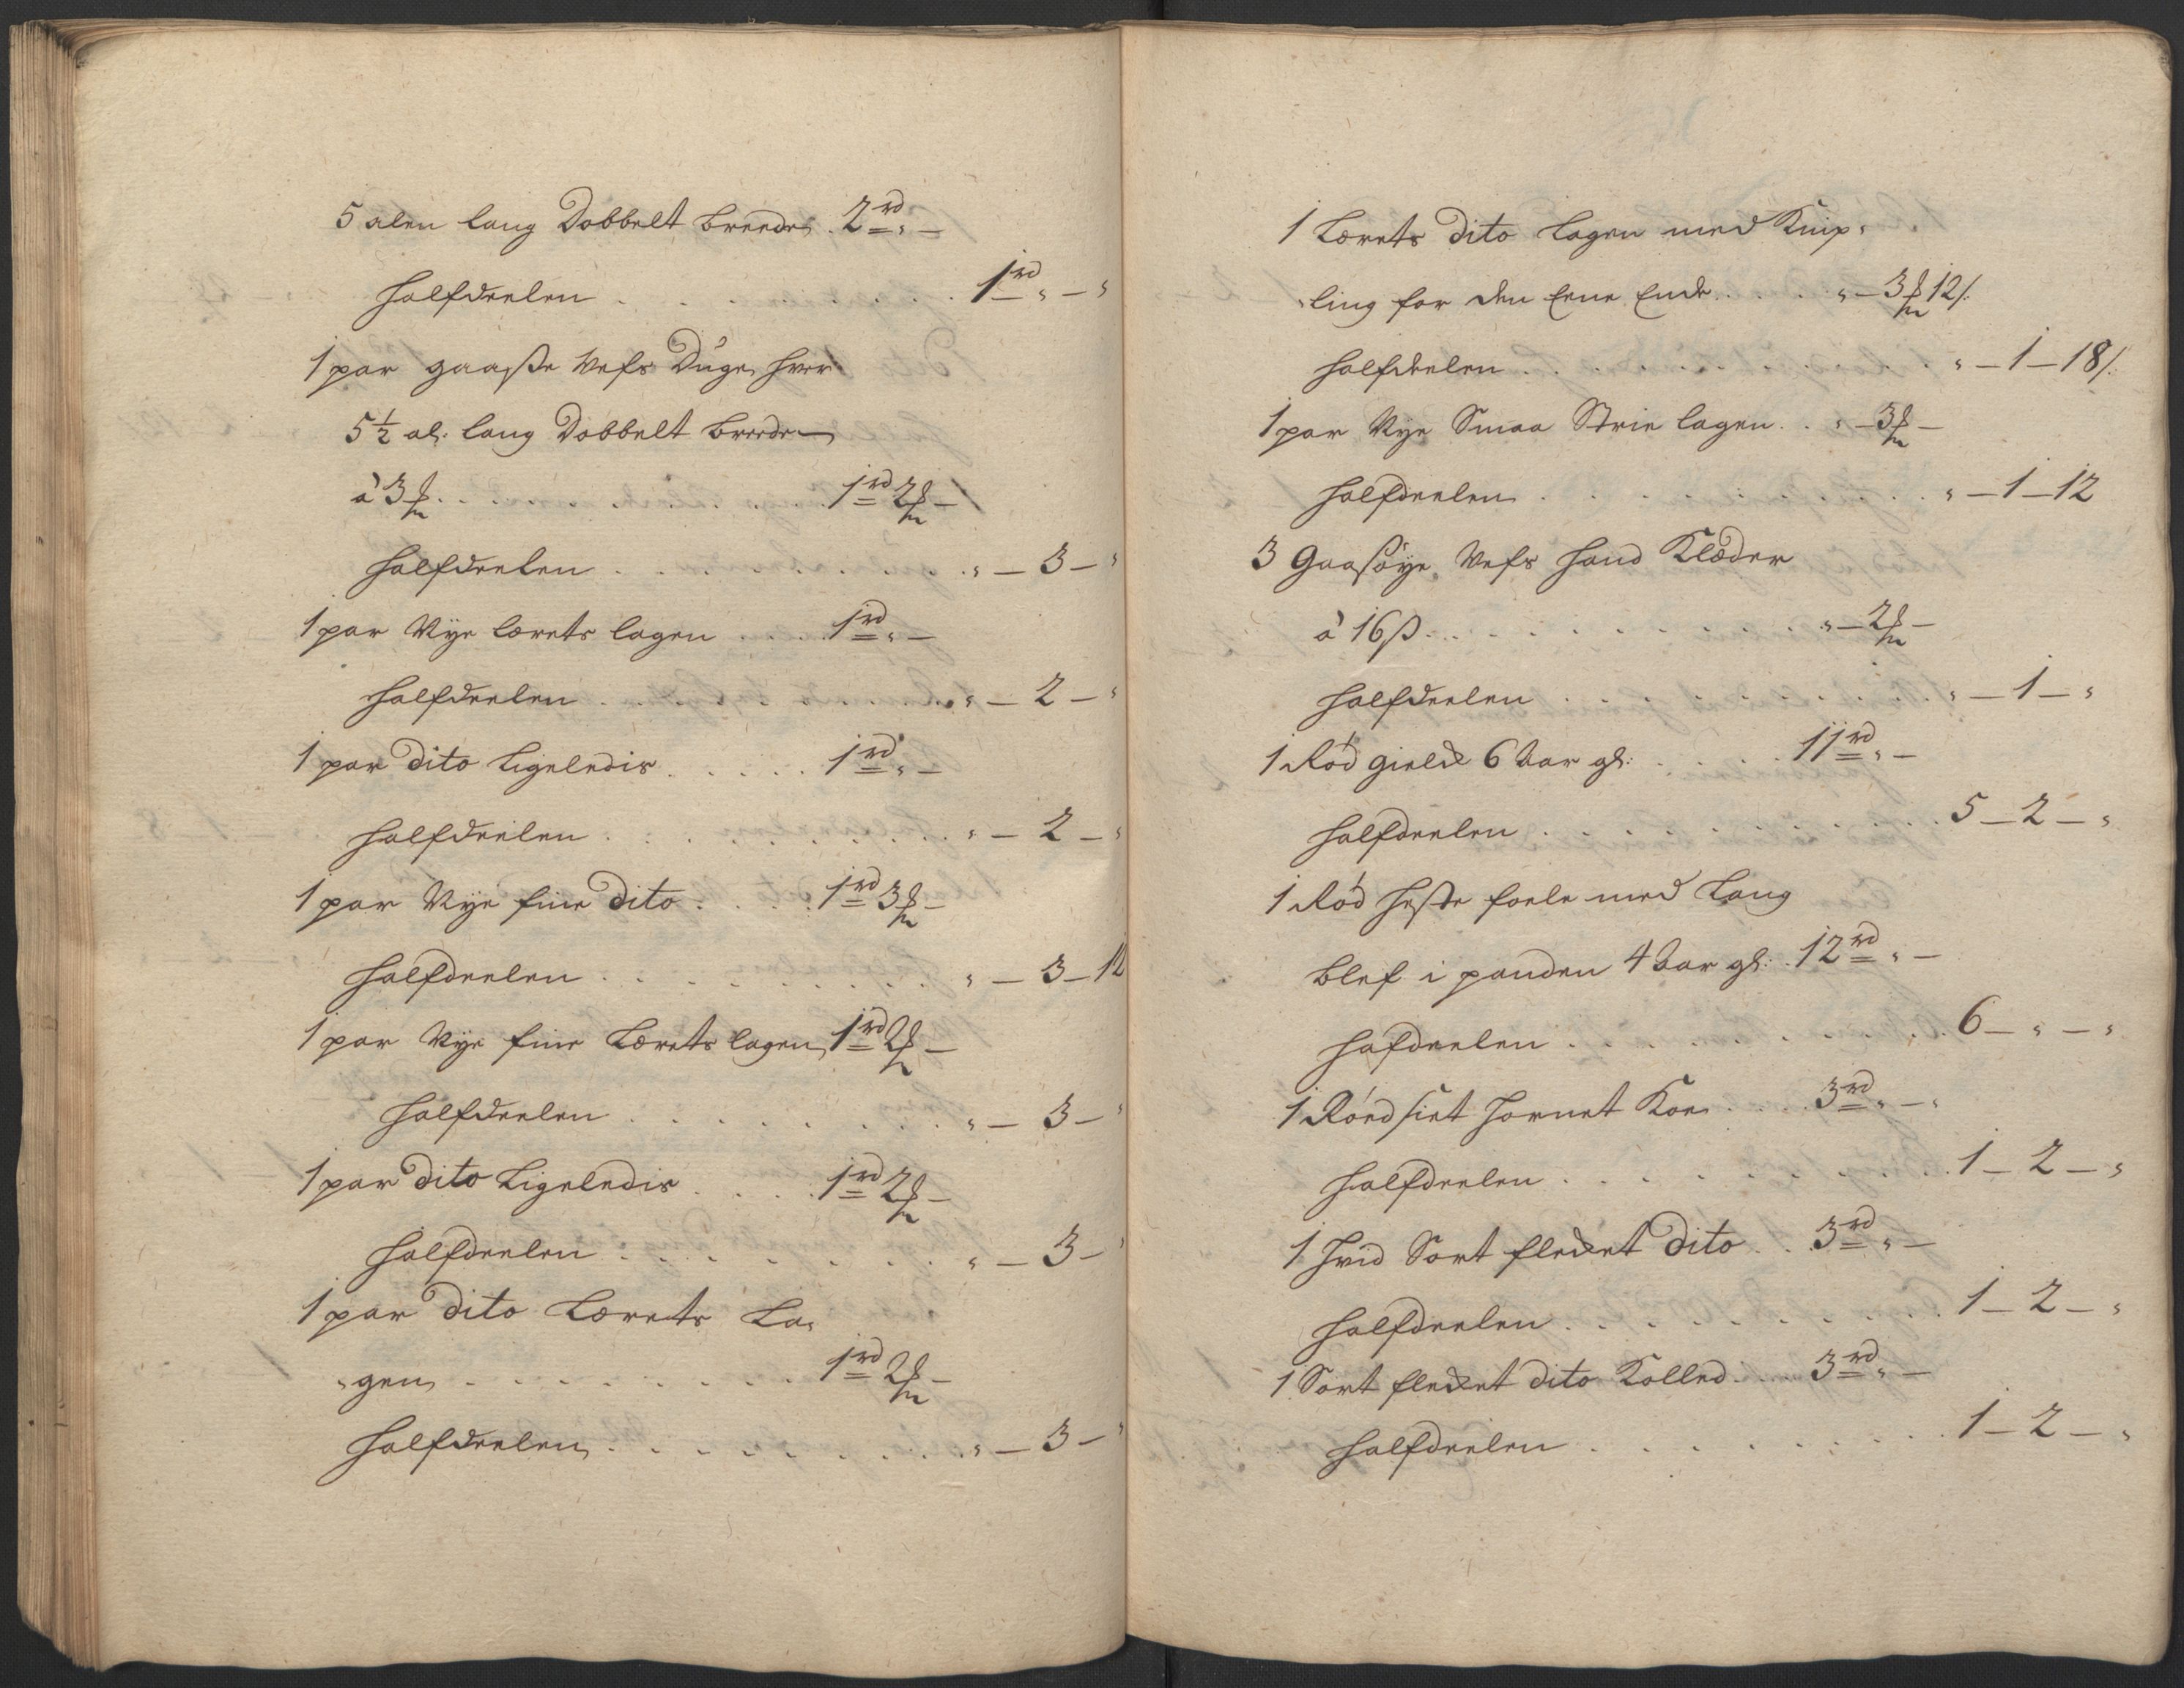 5 alen lang Dobbelt breede . 2 rd „ –
halfdeelen . . . . . . . . . 1 rd „ – „
1 par gaaße Vefs Duge, hver
5 1/2 al: lang Dobbelt breede
à 3 ₰ . . . . . . . . 1 rd 2 ₰ –
halfdeelen . . . . . . . . . „ – 3 – „
1 par Nye lærets lagen . . . 1 rd „ –
halfdeelen . . . . . . . . . „ – 2 – „
1 par dito Ligeledis . . . . . 1 rd „ –
halfdeelen . . . . . . . . . „ – 2 – „
1 par Nye fine dito . . . . 1 rd 3 ₰ –
halfdeelen . . . . . . . . . „ – 3 – 12
1 par Nye fine Lærets lagen 1 rd 2 ₰ –
halfdeelen . . . . . . . . . „ – 3 – „
1 par dito Ligeledis . . . . 1 rd 2 ₰ –
halfdeelen . . . . . . . . . „ – 3 – „
1 par dito Lærets La„
„gen . . . . . . . . . 1 rd 2 ₰ –
halfdeelen . . . . . . . . . „ – 3 – „
1 Lærets dito lagen med Knip„
„ling for den Eene Ende . . . . „ – 3 ₰ 12 /:
halfdeelen . . . . . . . . . „ – 1 – 18 /:
1 par Nye Smaa Strie lagen . . „ – 3 ₰ –
halfdeelen . . . . . . . . . „ – 1 – 12
3 Gaasøye Vefs hand Klæder
à 16 ß . . . . . . . . . „ – 2 ₰ –
halfdeelen . . . . . . . . . „ – 1 – „
1 Rød gield 6 Aar gl: . . . . 11 rd „ –
halfdeelen . . . . . . . . . 5 – 2 – „
1 Rød heste foele med Lang
blef i panden 4 Aar gl: . 12 rd „ –
hafdeelen . . . . . . . . . 6 – „ – „
1 Røed siet hornet Koe . . . . 3 rd „ – „
halfdeelen . . . . . . . . . 1 – 2 – „
1 hvid Sort flecket dito . . 3 rd „ –
halfdeelen . . . . . . . . . 1 – 2 – „
1 Sort flecket dito Kolled . . . 3 rd „ –
halfdeelen . . . . . . . . . 1 – 2 – „